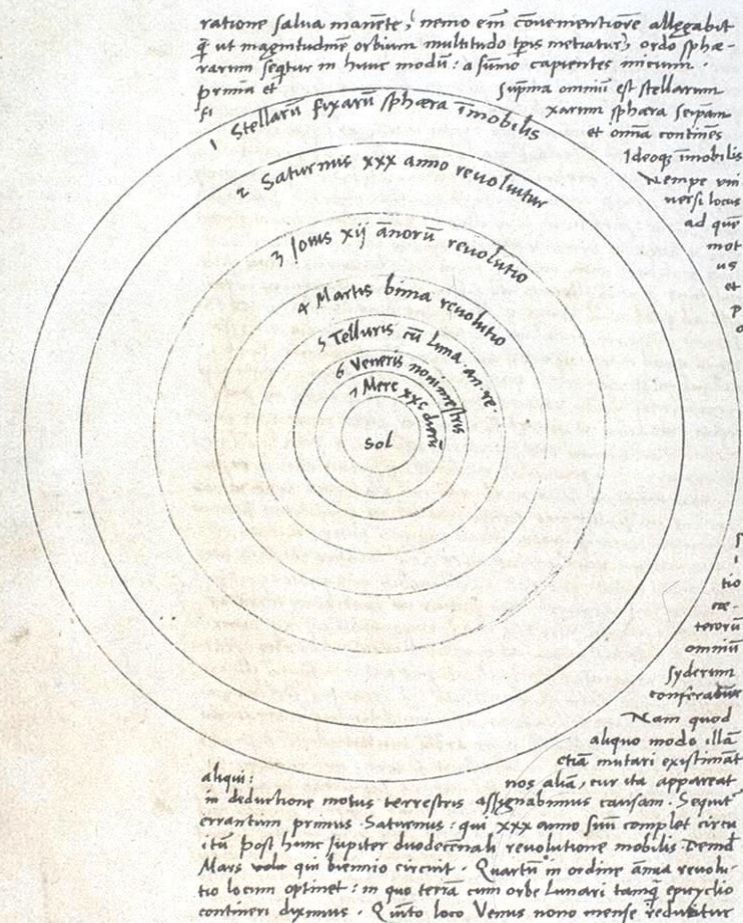 ratione salua manēte, nemo em̄ cōuenientiorē allegabit
q̃ ut magnitudinē orbium multitudo tp̄is metiatur, ordo sphæ-
rarum seq̄tur in hunc modū: a sūmo capientes initium.
prima et sup̄ma omniū est stellarum
fi xarum sphæra seip̄am
et om̄ia continēs
Ideoq; īmobilis
Nempe uni
uersi locus
ad quē
mot
us
et
p
o
1 Stellarū fixarū sphæra īmobilis
2 Saturnus xxx anno reuoluitur
3 Iouis xij ānorū reuolutio
4 Martis bima reuolutio
5 Telluris cū Luna an. re.
6 Veneris nonimestris
7 Merc xxc dierū
Sol
s
i
tio
cæ-
terorū
omniū
syderum
conferatur
Nam quod
aliquo modo illā
etiā mutari existimāt
aliqui: nos aliā, cur ita appareat
in deductione motus terrestris assignabimus causam. Sequit̄
errantium primus Saturnus: qui xxx anno suū complet circu
itū post hunc Iupiter duodecennali reuolutione mobilis Deind
Mars qui biennio circuit. Quartū in ordine ānua reuolu-
tio locum optinet: in quo terrā cum orbe Lunari tamq̃ epicyclio
contineri diximus. Quinto loco Venus nono mense reducitur